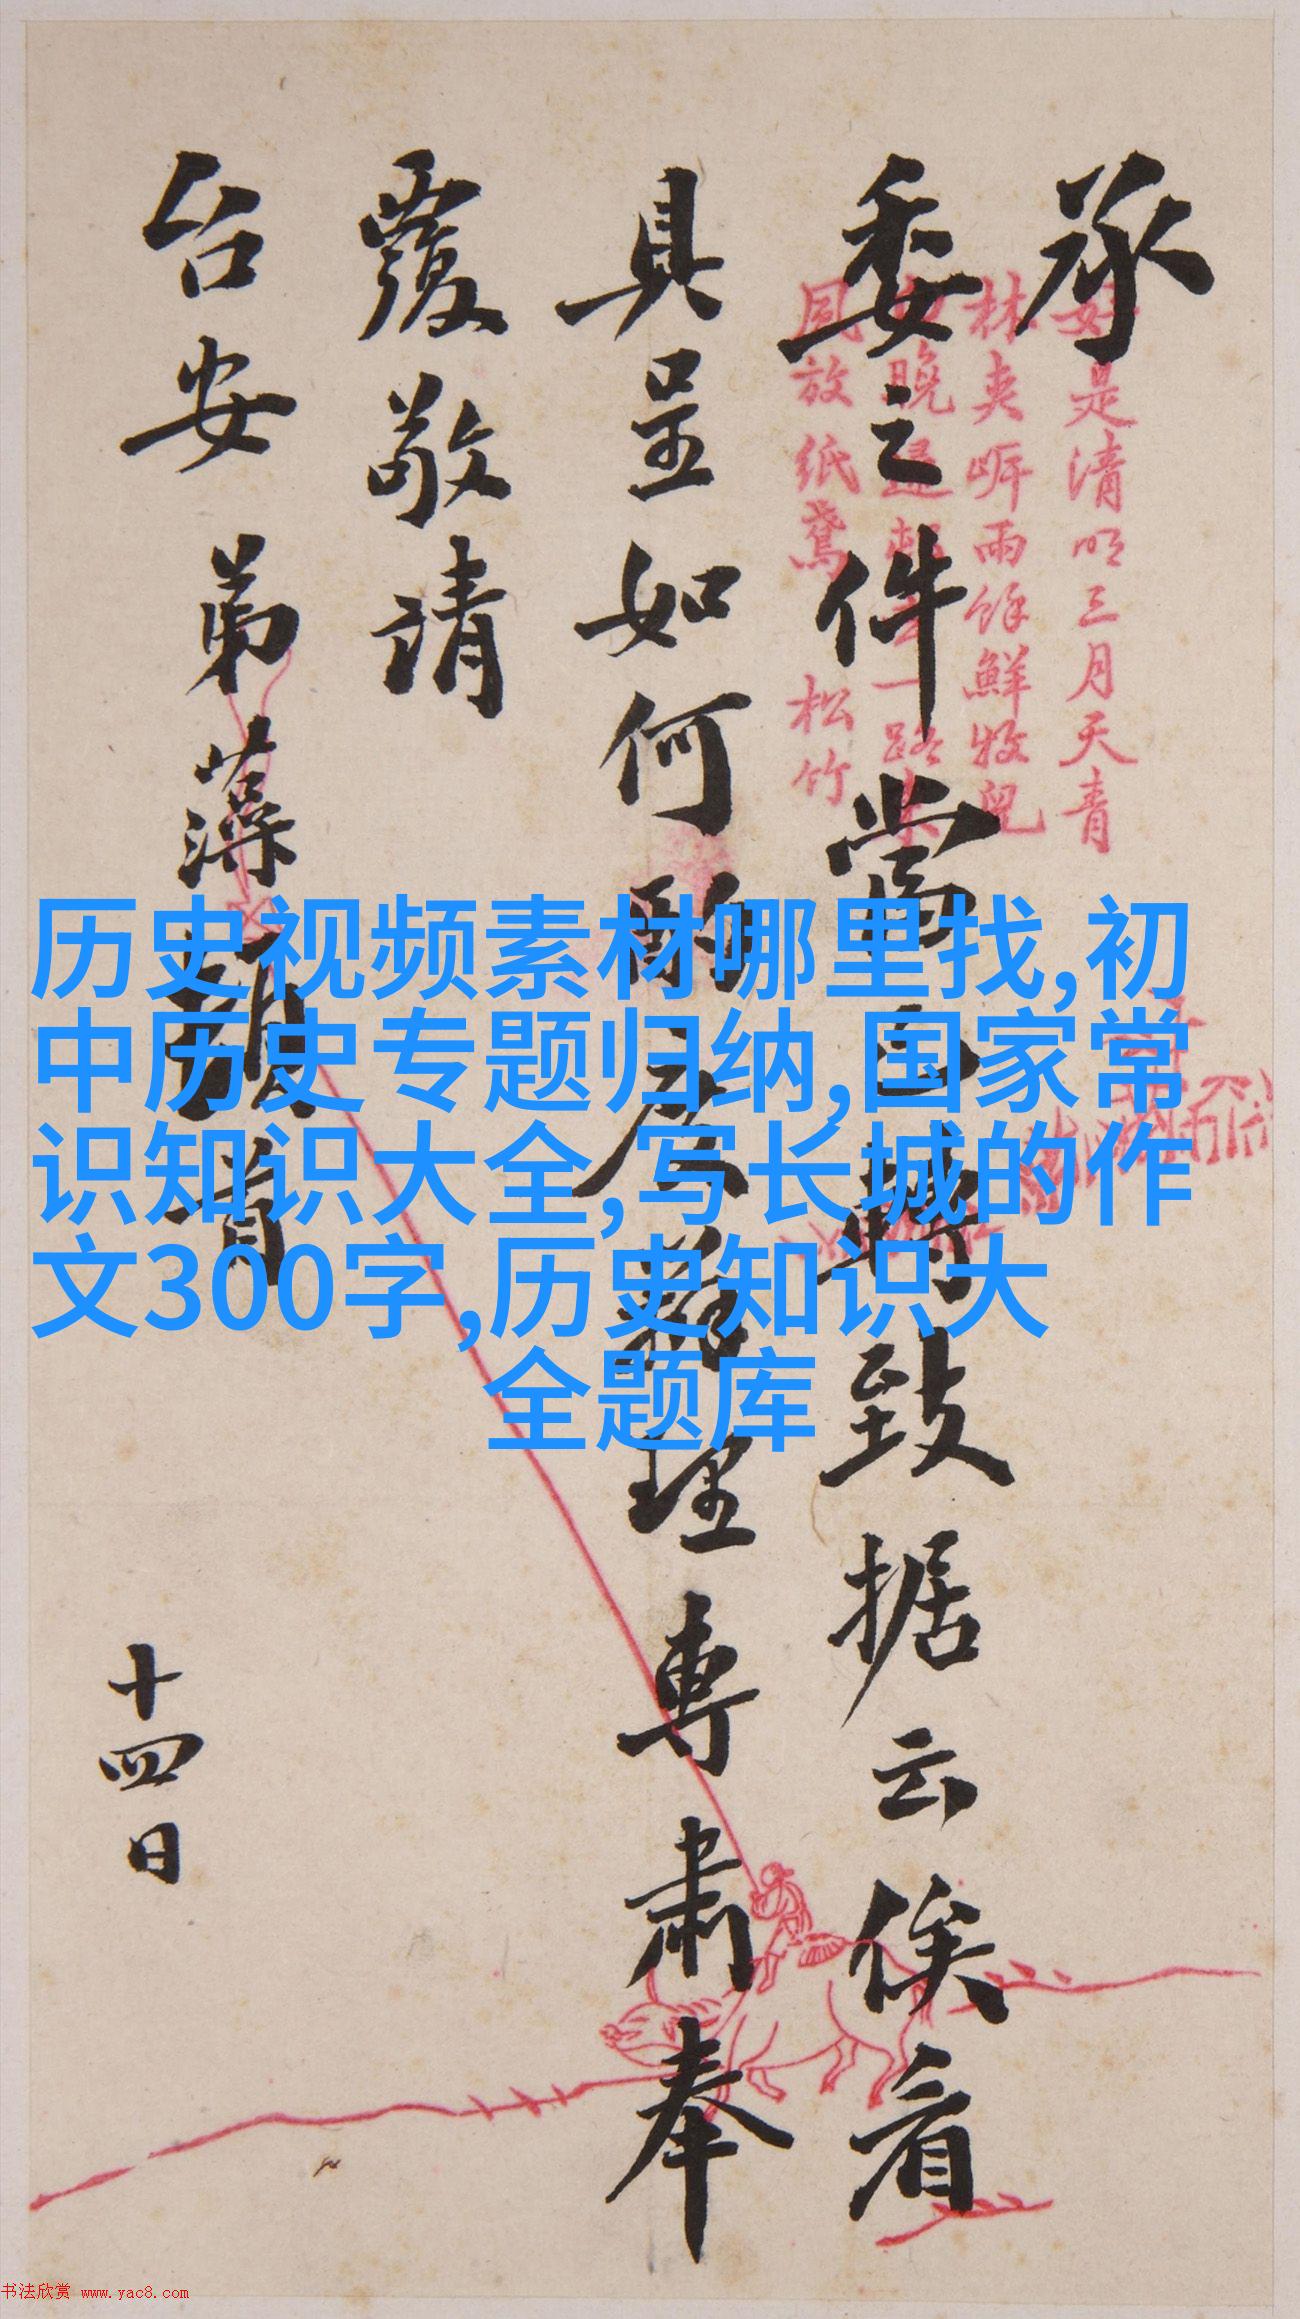 承
委之件當即轉致据云俟看
具呈如何 辦理專肅奉
覆敬请
台安 弟藻翔頓首
十四日
好是清明三月天青
林夹岸雨餘鮮牧兒
晚
同放紙鳶 松竹
历史视频素材哪里找,初
中历史专题归纳,国家常
识知识大全,写长城的作
文300字,历史知识大
全题库
书法欣赏 www.yac8.com